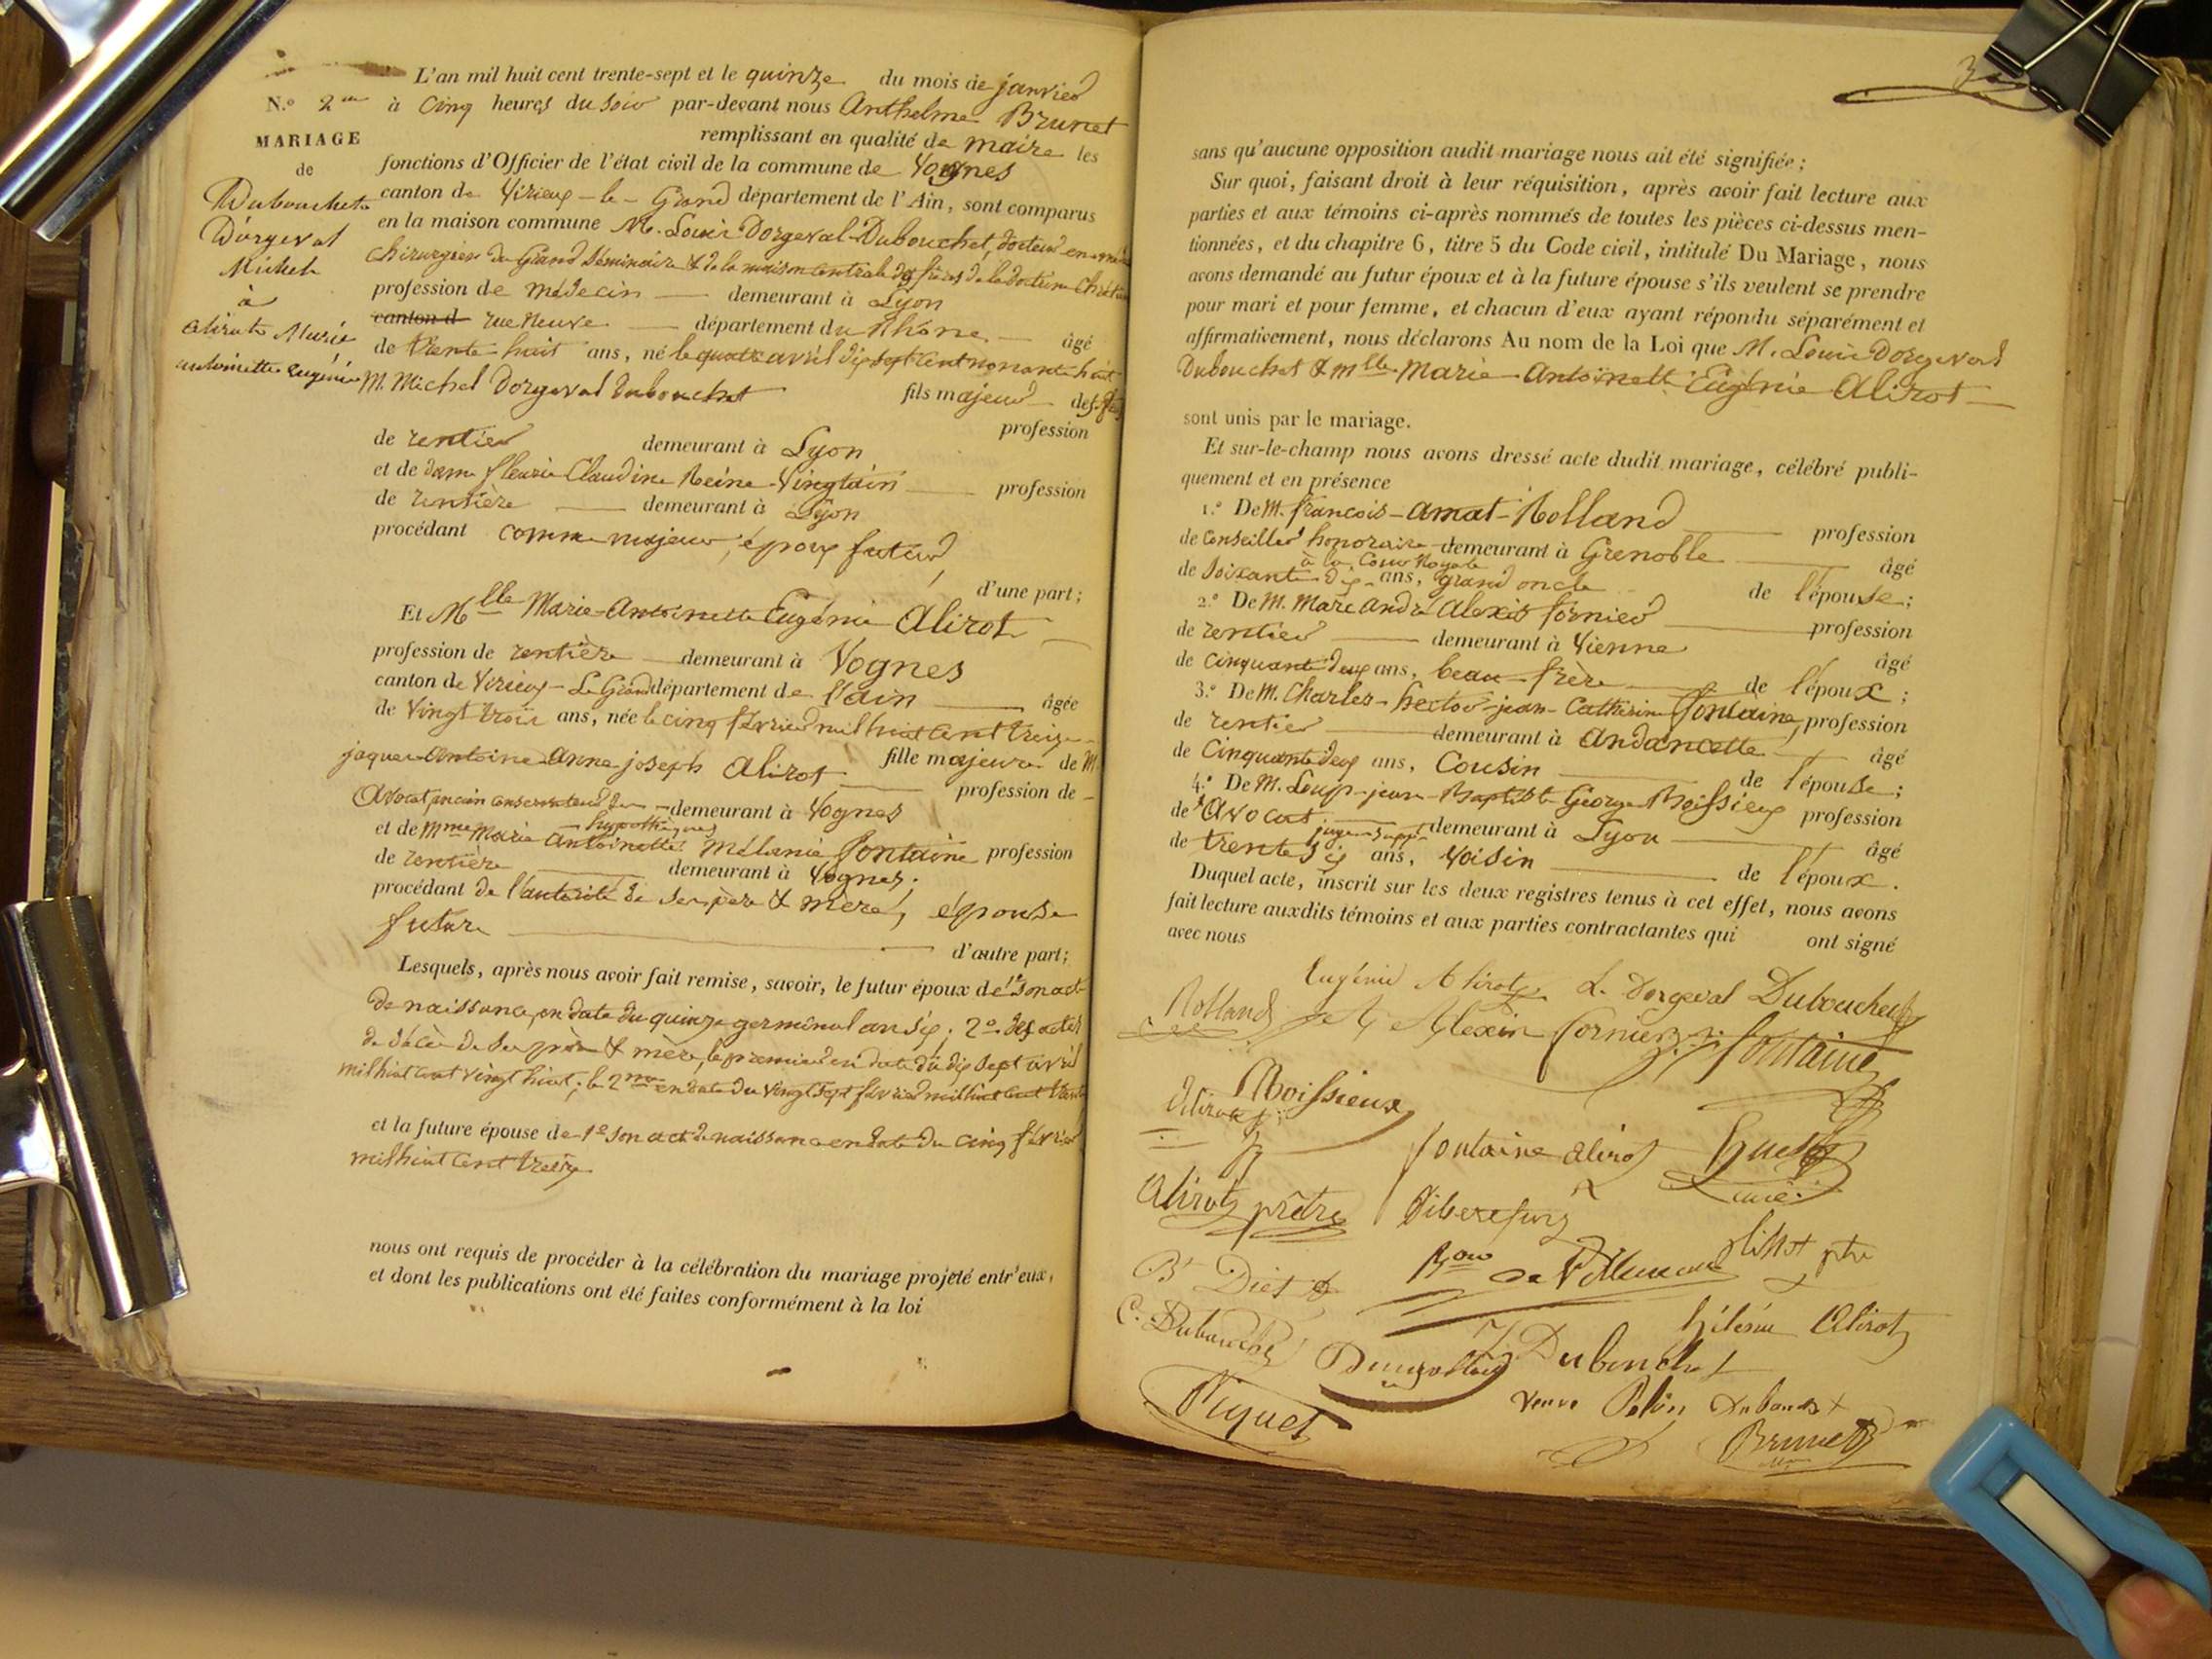 L'an mil huit cent trente-sept et le quinze du mois de janvier
N.o 2me à cinq heures du soir par-devant nous Anthelme Brunet
remplissant en qualité de maire les
MARIAGE
fonctions d'Officier de l'état civil de la commune de Vognes
de
canton de Virieux-le-Grand département de l'Ain, sont comparus
Dubouchet
Dorgeval
Michel
à
alirot Marie
antoinette eugénie
en la maison commune M. Louis Dorgeval-Dubouchet, docteur en
Chirurgien du Grand Séminaire & de la maison centrale des frères de la doctrine
profession de médecin demeurant à Lyon
canton d rue Neuve département du Rhône âgé
de trente huit ans, né le quatre avril dix sept cent nonante huit
M. Michel Dorgeval Dubouchet fils majeur de
profession
de rentier demeurant à Lyon
et de dame fleurie Claudine Reine Vingtain profession
de rentière demeurant à Lyon
procédant comme majeur, époux futur,
d'une part;
Et Mlle Marie-Antoinette Eugénie Alirot
profession de rentière demeurant à Vognes
canton de Virieux-Le Grand département de l'ain âgée
de vingt trois ans, née le cinq février mil huit cent treize
jaques Antoine anne joseph Alirot fille majeure de M.
profession de
Avocat ancien conservateur des demeurant à Vognes
hypothèques
et de Mme Marie Antoinette Mélanie fontaine profession
de rentière demeurant à Vognes;
procédant de l'autorité de ses père & mère, épouse
future
d'autre part;
Lesquels, après nous avoir fait remise, savoir, le futur époux de 1o son acte
de naissance, en date du quinze germinal an six; 2o des actes
de décès de ses père & mère, le premier en date du dix sept avril
mil huit cent vingt huit; le 2me en date du vingt sept février mil huit cent
et la future épouse de 1o son acte de naissance en date du cinq février
mil huit cent treize
nous ont requis de procéder à la célébration du mariage projeté entr'eux,
et dont les publications ont été faites conformément à la loi
sans qu'aucune opposition audit mariage nous ait été signifiée;
Sur quoi, faisant droit à leur réquisition, après avoir fait lecture aux
parties et aux témoins ci-après nommés de toutes les pièces ci-dessus men-
tionnées, et du chapitre 6, titre 5 du Code civil, intitulé Du Mariage, nous
avons demandé au futur époux et à la future épouse s'ils veulent se prendre
pour mari et pour femme, et chacun d'eux ayant répondu séparément et
affirmativement, nous déclarons Au nom de la Loi que M. Louis Dorgeval
Dubouchet & Mlle Marie Antoinette Eugénie Alirot
sont unis par le mariage.
Et sur-le-champ nous avons dressé acte dudit mariage, célébré publi-
quement et en présence
1.o De M. françois-amat-Rolland profession
de conseiller honoraire demeurant à Grenoble âgé
à la Cour Royale
de soixante dix ans, grand oncle de l'épouse;
2.o De M. Marc André Alexis fornier profession
de rentier demeurant à Vienne âgé
de cinquante deux ans, beau-frère de l'époux;
3.o De M. Charles-hector-jean-Catherin fontaine, profession
de rentier demeurant à andancette âgé
de cinquante deux ans, cousin de l'épouse;
4.o De M. Loup-jean-Baptiste George Boissieux profession
de Avocat juge supp. demeurant à Lyon âgé
de trente six ans, voisin de l'époux.
Duquel acte, inscrit sur les deux registres tenus à cet effet, nous avons
fait lecture auxdits témoins et aux parties contractantes qui ont signé
avec nous
Eugénie Alirot L. Dorgeval Dubouchet
Rolland Alexis fornier fontaine
Boissieux
Alirot
fontaine alirot
curé
Alirot prêtre
Bon de ptre
C. Dubouchet Alirot
Dubouchet
Piquet veuve Dubouchet
Brunet